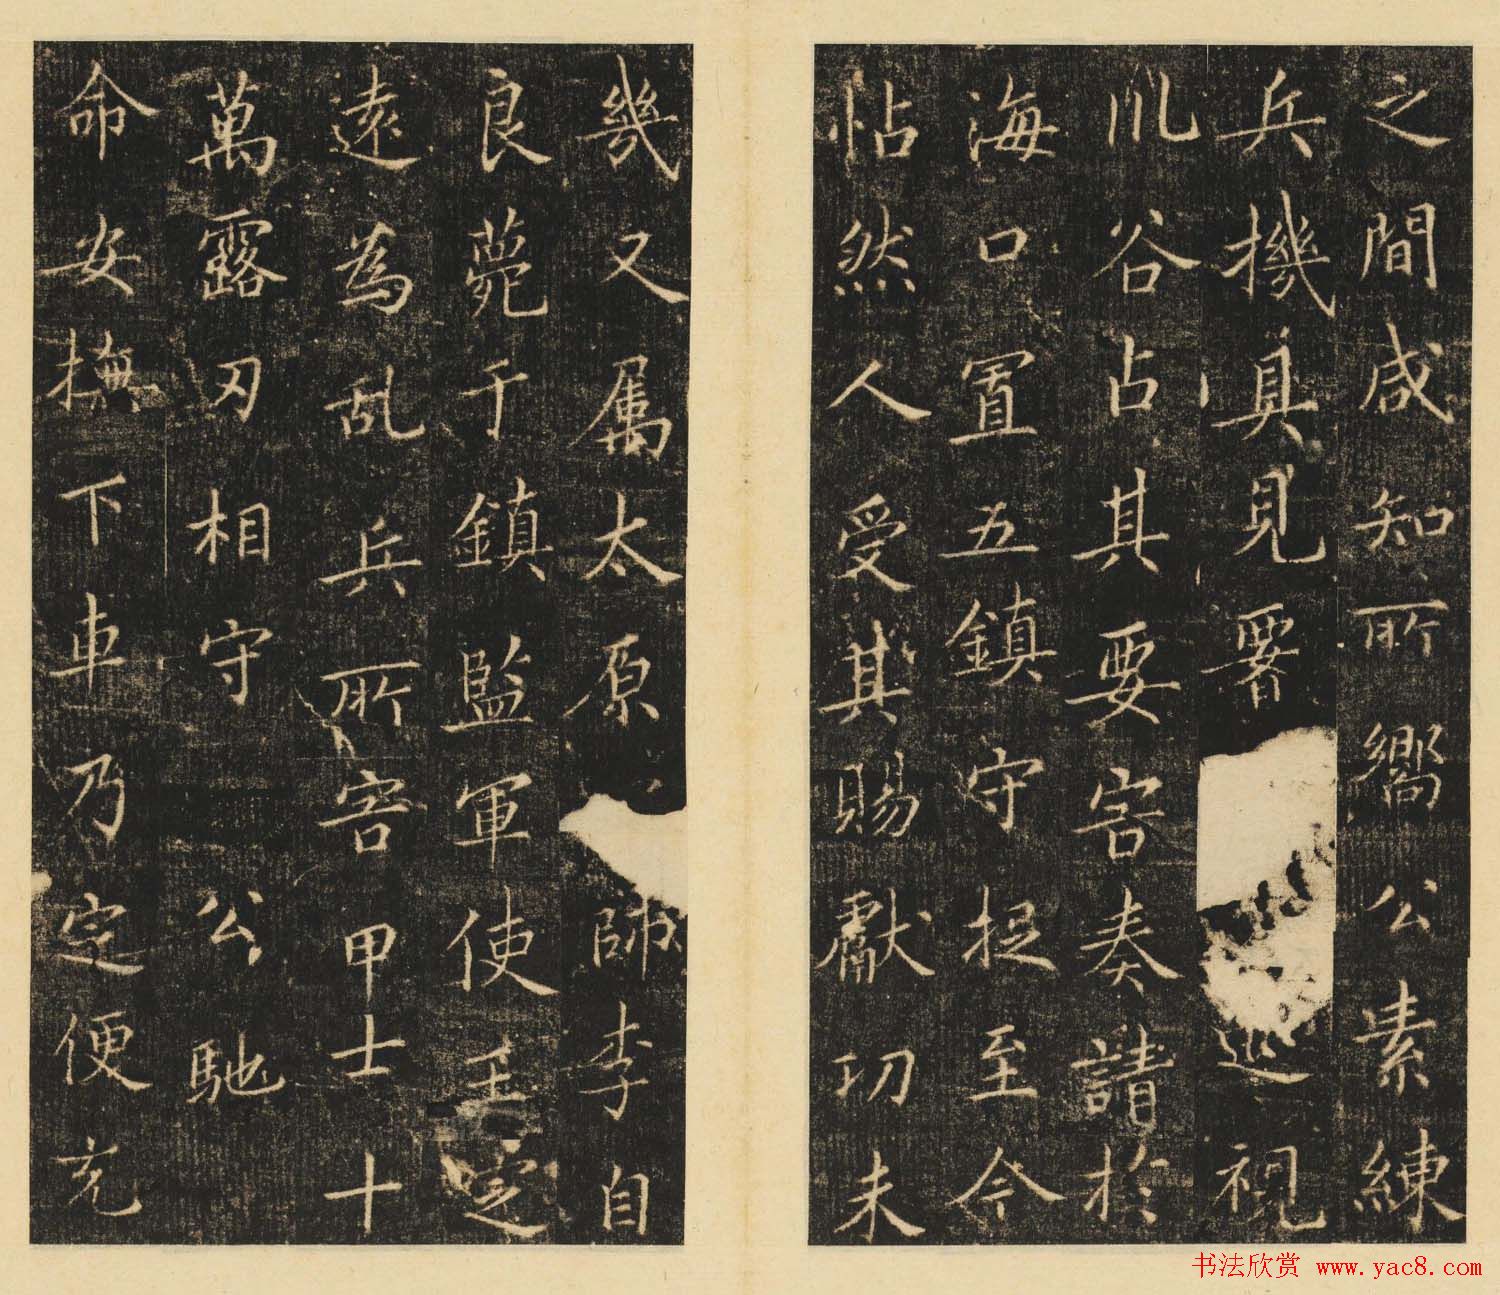 之間咸知所嚮公素練
兵機具見署巡視
川谷占其要害奏請於
海口置五鎮守捉至今
帖然人受其賜獻功未
幾又属太原師李自
良薨于鎮監軍使王定
遠為乱兵所害甲士十
萬露刃相守公馳
命安撫下車乃定便充
书法欣赏 www.yac8.com